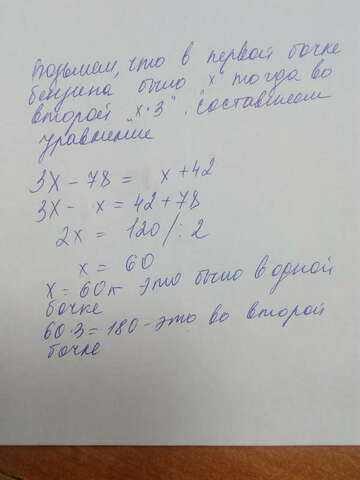 Возьмем, что в первой бочке
бензина было "x" тогда во
второй "x·3". Составляем
уравнение
3x - 78 = x + 42
3x - x = 42 + 78
2x = 120 /: 2
x = 60
x = 60л это было в одной
бочке
60·3 = 180 - это во второй
бочке